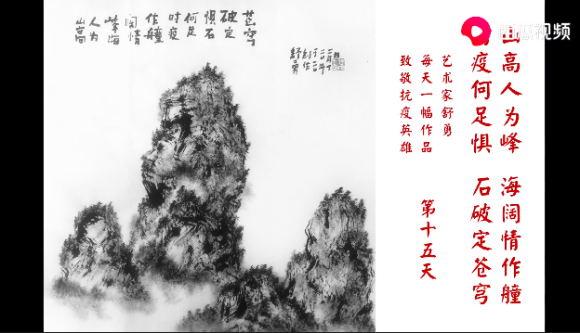 山高
人为
峰海
阔情
作艟
时疫
何足
惧石
破定
苍穹
舒勇
视频
山高人为峰 海阔情作艟
疫何足惧 石破定苍穹
艺术家舒勇
每天一幅作品
致敬抗疫英雄
第十五天